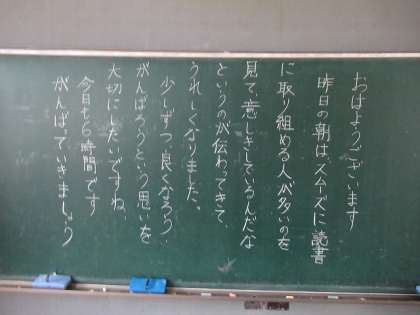 おはようございます
昨日の朝はスムーズに読書
に取り組める人が多いのを
見て、意しきしているんだな
というのが伝わってきて、
うれしくなりました。
少しずつ良くなろう、
がんばろうという思いを
大切にしたいですね。
今日も6時間です
がんばっていきましょう